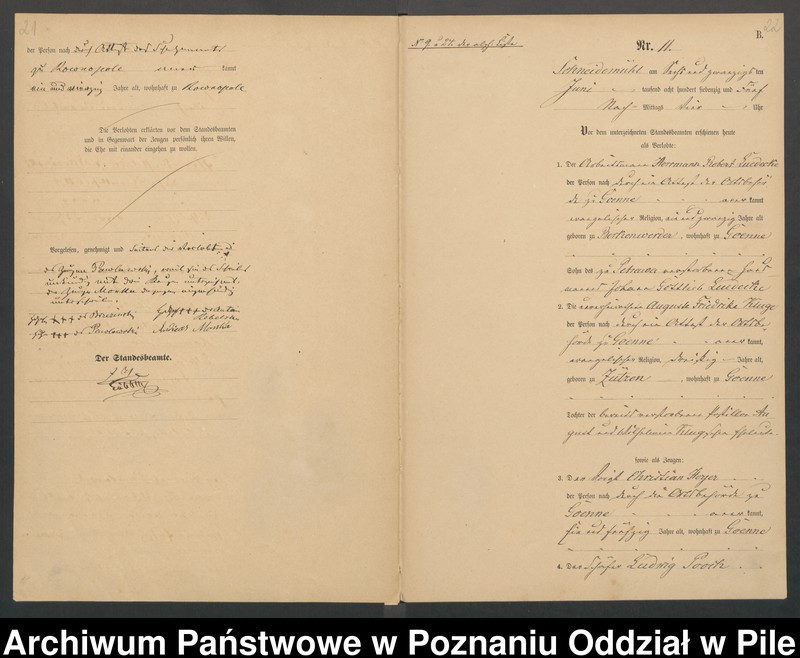 21
der Person nach durch Attest des Schulzenamts
zu Kownopole aner kannt
ein und vierzig Jahre alt, wohnhaft zu Kownopole
Die Verlobten erklärten vor dem Standesbeamten
und in Gegenwart der Zeugen persönlich ihren Willen,
die Ehe mit einander eingehen zu wollen.
Vorgelesen, genehmigt und
des Zeugen
unkundig mit dem Kreuze unterzeichnet,
der Zeuge Monka dagegen eigenhändig
unterschrieb.
+++ des Borzinski +++ der
+++ des Andreas Monka
Der Standesbeamte.
22
B.
Nr. 11.
Schneidemühl am Sechs und zwanzigsten
Juni tausend acht hundert siebenzig und Fünf
Nach-Mittags vier Uhr
Vor dem unterzeichneten Standesbeamten erschienen heute
als Verlobte:
1. Der Arbeitsmann Herrmann Robert Luedecke
der Person nach durch ein Attest der Ortsbehör
de zu Goenne aner kannt
evangelischer Religion, ein und zwanzig Jahre alt
geboren zu Borkenwerder, wohnhaft zu Goenne
Sohn des zu Petzawa verstorbenen
Johann Gottlieb Luedecke
2. Die unverehelichte Auguste Friedrike Kluge
der Person nach durch ein Attest der Ortsbe
hörde zu Goenne aner kannt,
evangelischer Religion, dreißig Jahre alt,
geboren zu Zützen, wohnhaft zu Goenne
Tochter der bereits verstorbenen Au
gust und Wilhelmine Kluge'schen Eheleute.
sowie als Zeugen:
3. Der Voigt Christian Heyer
der Person nach durch die Ortsbehörde zu
Goenne aner kannt,
fünfzig Jahre alt, wohnhaft zu Goenne
4. Der Schäfer Ludwig Poock
Archiwum Państwowe w Poznaniu Oddział w Pile